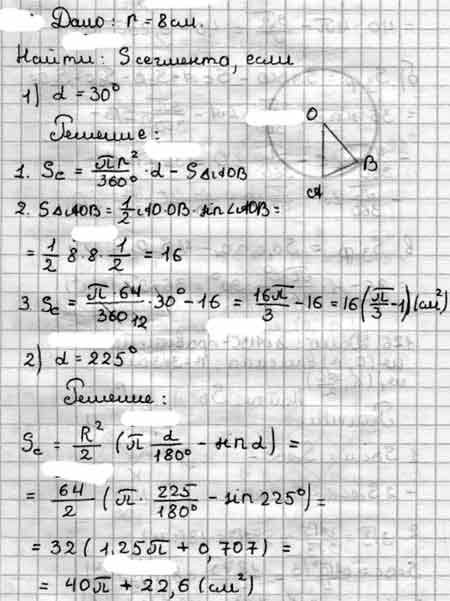 Дано: r = 8 см.
Найти: S сегмента, если
1) α = 30°
Решение:
O
B
A
1. Sc = πr²/360° · α - S△AOB
2. S△AOB = 1/2 AO·OB·sin∠AOB =
= 1/2 8·8·1/2 = 16
3. Sc = π·64/360 12 · 30° - 16 = 16π/3 - 16 = 16(π/3 - 1)(см²)
2) α = 225°
Решение:
Sc = R²/2 (π α/180° - sin α) =
= 64/2 (π · 225/180° - sin 225°) =
= 32(1,25π + 0,707) =
= 40π + 22,6 (см²)